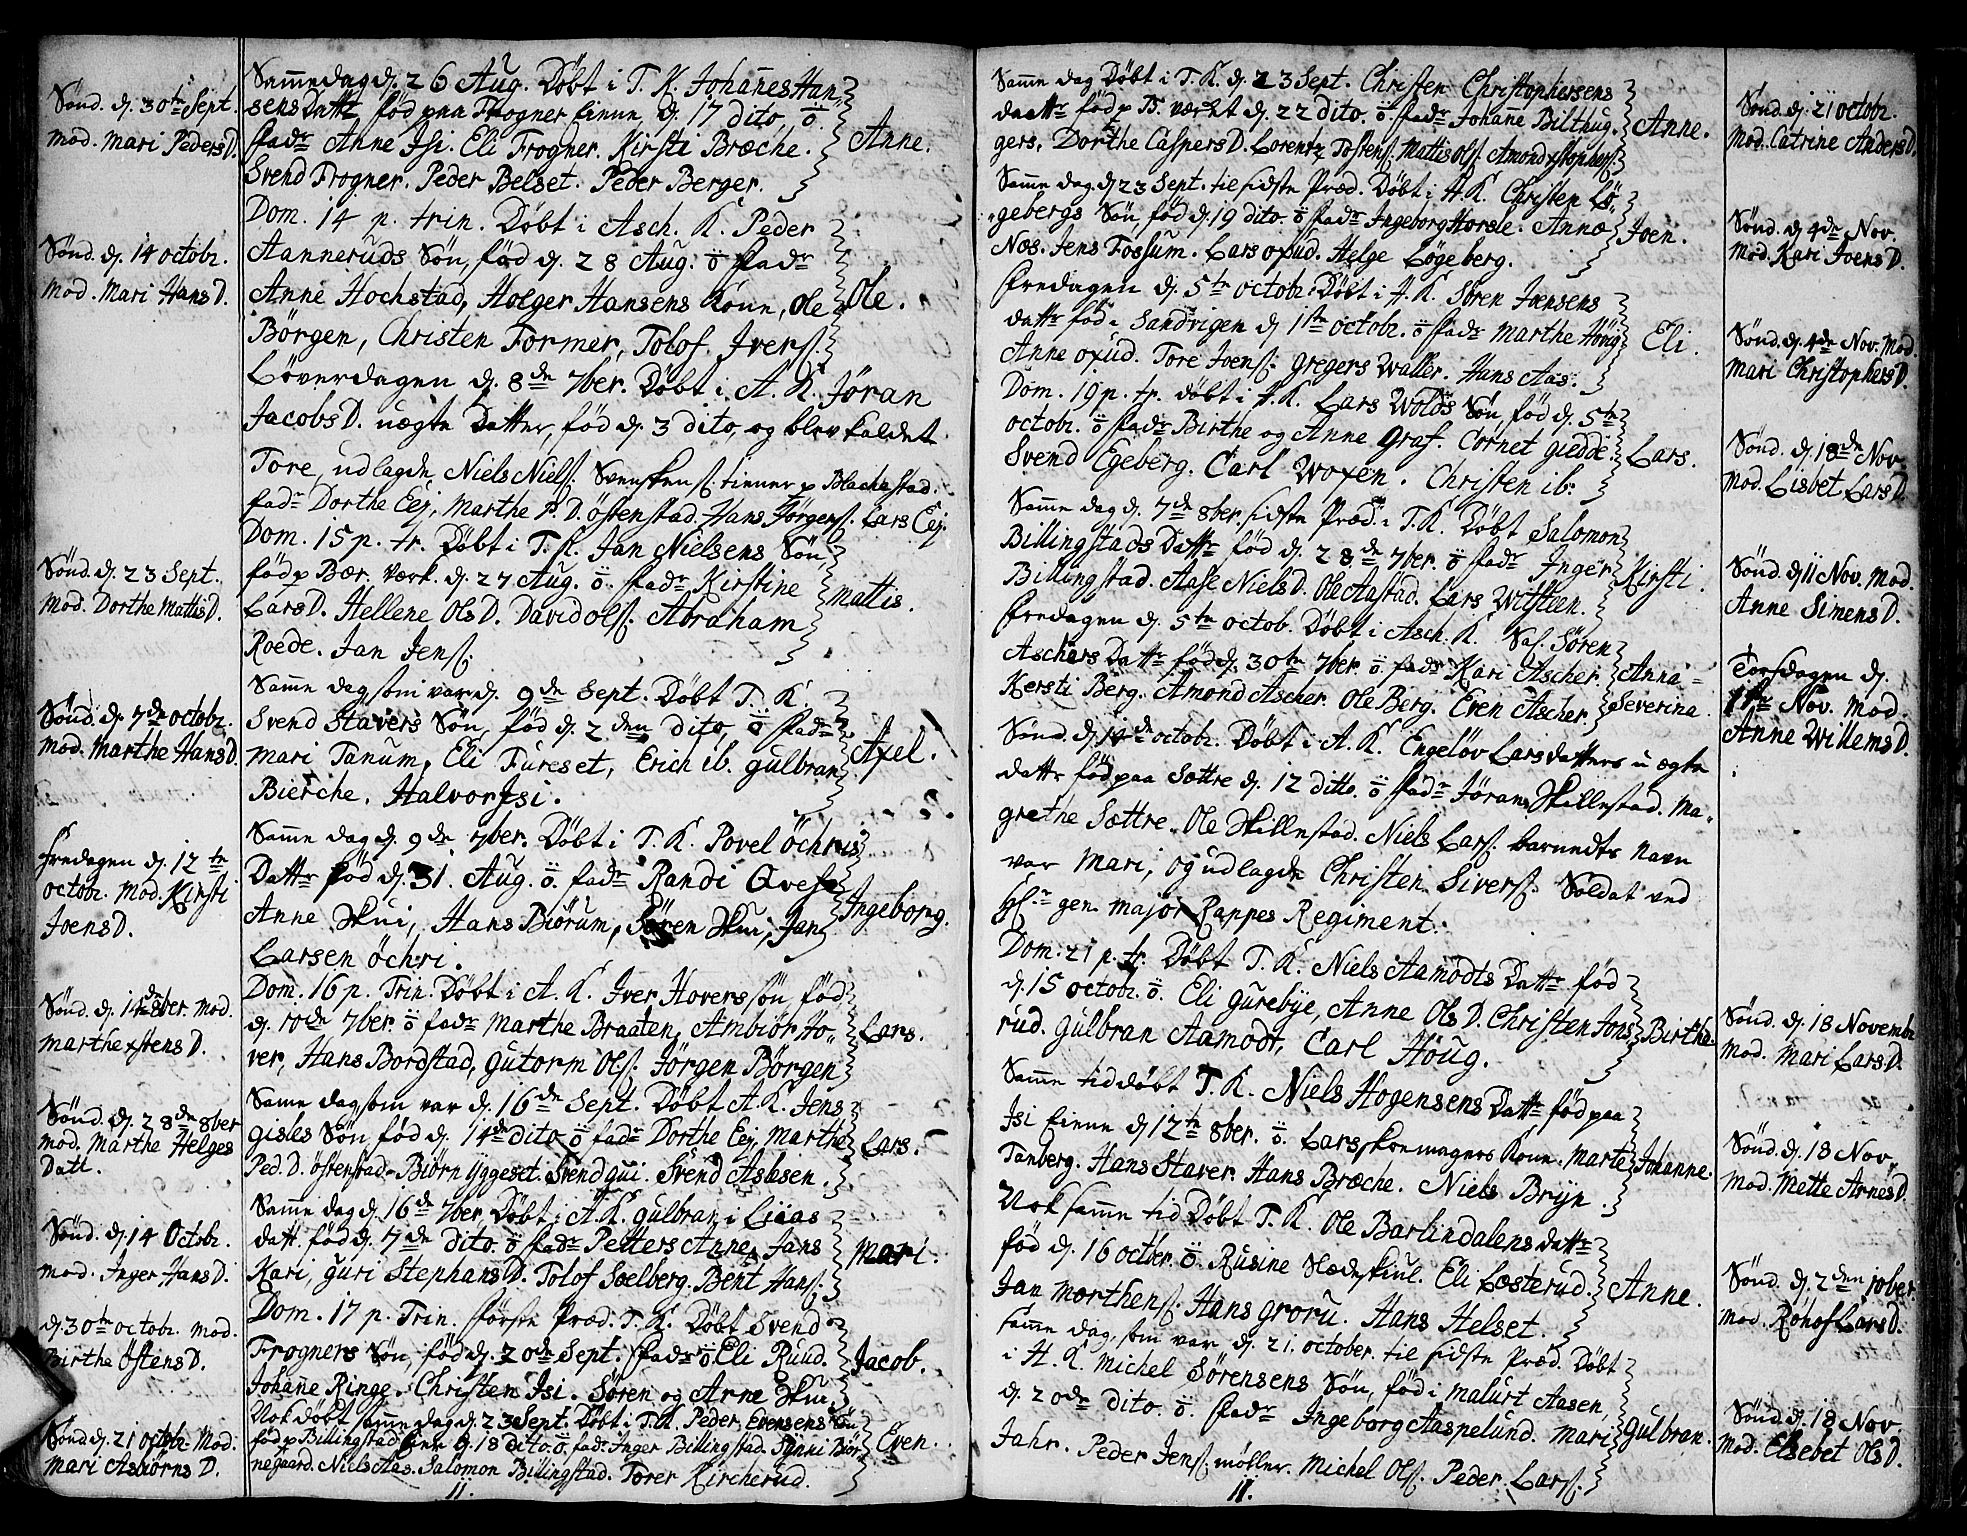 Sönd. d. 30te Sept.
Mod. Mari PedersD.
Sönd. d. 14 octobr.
Mod. Mari HansD.
Sönd. d. 23 Sept.
Mod. Dorthe MattisD.
Sönd. d. 7de octobr.
Mod. Marthe HansD.
Fredagen d. 12te
octobr. Mod. Kirsti
JoensD.
Sönd. d. 14de 8ber. Mod.
Marthe xstensD.
Sönd. d. 28de 8ber
Mod. Marthe Helges
Datt.
Sönd. d. 14 Octobr.
Mod. Inger HansD.
d. 30te octobr. Mod.
Birthe ÖstensD.
Sönd. d. 21 octobr. Mod.
Mari AsbiörnsD.
Samme dag d. 26 Aug. Döbt i T. K. Johannes Han-
sens Dattr, föd paa Frogner Eiene d. 17 dito. ö
fadr Anne Isi. Eli Frogner. Kirsti Bræche. Anne.
Svend Frogner. Peder Belset. Peder Berger.
Dom. 14 p. trin. Döbt i Asch. K. Peder
Aanneruds Sön, föd d. 28 Aug. ö fadr
Anne Hochstad, Holger Hansens Kone, Ole Ole.
Börgen, Christen Former, Tolof Iverss.
Löverdagen d. 8de 7ber. Döbt i A. K. Jöran
JacobsD. uægte Datter, föd d. 3 dito, og blev kaldet
Tore, udlagde Niels Nielss. Svensken tiener p Blachestad.
fadr Dorthe Eej, Marthe P.D. Östenstad. Hans Jörgenss. Lars Eej.
Dom. 15 p. tr. Döbt i T. K. Jan Nielsens Sön,
föd p Bær. Værk. d. 27 Aug. ö. fadr Kirstine Mattis.
LarsD. Hellene OlsD. David Olss. Abraham
Roede. Jan Jenss.
Samme dag, som var d. 9de Sept. Döbt T. K.
Svend Stavers Sön, föd d. 2den dito, ö fadr
Mari Tanum, Eli Fureset, Erich ib. Gulbran Axel.
Bierche. Halvor Isi.
Samme dag d. 9de 7ber. Döbt i T. K. Povel Öchris
Dattr föd d. 31. Aug. ö. fadr Randi Qvese
Anne Skui, Hans Biörum, Sören Skui, Jan Ingeborg.
Larsen Öchri.
Dom. 16 p. Trin. Döbt i A. K. Iver Hovers sön, föd
d. 10de 7ber. ö fadr Marthe Braaten, Ambiör Ho- Lars.
ver, Hans Bordstad, Gutorm Olss. Jörgen Börgen
Samme dag, som var d. 16de Sept. Döbt A. K. Jens
Gisles Sön, föd d. 14de dito ö fadr Dorthe Eej, Marthe Lars.
Ped. D. Östenstad. Biörn Yggeset. Svend Gui. Svend Asbsen.
Samme dag d. 16de 7ber Döbt i A. K. Gulbran i Liaas
datt. föd d. 7de dito. ö fadr Petters Anne, Jans Mari.
Kari, Guri StephansD. Tolof Soelberg. Bent Hanss.
Dom. 17 p. Trin. förste Præd. T. K. Döbt Svend
Frogners Sön, föd d. 20de Sept. fadr ö Eli Ruud. Jacob.
Johanne Ringe. Christen Isi. Sören og Arne Skui
Nok döbt samme dag d. 23 Sept. Döbt i T. K. Peder Evensens Sön
föd p Billingstad Eiene d. 18 dito. ö. fadr Inger Billingstad. Biör- Even.
negaard. Niels Aas. Salomon Billingstad. Torer Kircherud.
11.
Samme dag Döbt i T. K. d. 23 Sept. Christen Christophersens
dattr föd p B. værket d. 22 dito. ö fadr Johanne Bilthug- Anne.
gers. Dorthe CaspersD. Lorentz Tostenss. Mattis Olss. Amond xstopherss.
Samme dag d. 23 Sept. til sidste Præd. Döbt i H. K. Christen Lö-
gebergs Sön, föd d. 19 dito. ö fadr Ingeborg Horsle. Anne Joen.
Næs. Jens Fossum. Lars Oxud. Helge Lögeberg.
Fredagen d. 5te octobr. Döbt i H. K. Sören Joensens
dattr föd i Sandvigen d. 1ste octobr. ö fadr Marthe Höug Eli.
Anne Oxud. Tore Joenss. Gregers Waller. Hans Aas.
Dom. 19 p. tr. döbt i H. K. Lars Wolds Sön, föd d. 5te
octobr. ö fadr Birthe og Anne Graf. Cornet Giedde. Lars.
Svend Egeberg. Carl Woxen. Christen ib:
Samme dag d. 7de 8ber. sidste Præd. i T. K. Döbt Salomon
Billingstads Dattr föd d. 28de 7ber. ö fadr Inger Kirsti.
Billingstad. Aase NielsD. Ole Aastad. Lars Witsteen.
Fredagen d. 5te octob. Döbt i Asch. K. Sal. Sören
Aschers Dattr föd d. 30te 7ber. ö fadr Kari Ascher Anna-
Kersti Berg. Amond Ascher. Ole Berg. Even Ascher. Severina.
Sönd. d. 14de octobr. Döbt i A. K. Engeløv Larsdatters uægte
dattr föd paa Sættre d. 12 ditto. ö fadr Jöran Skillestad. Ma-
grethe Sættre. Ole Skillestad. Niels Larss. barnedts Navn
var Mari, og udlagde Christen Siverss. Soldat ved
Hr. Gen. Major Rappes Regiment.
Dom. 21 p. tr. Döbt T. K. Niels Aamodts Dattr föd
d. 15 octobr. ö. Eli Gurebye, Anne OlsD. Christen Jons Birthe.
rud. Gulbran Aamodt, Carl Höug.
Samme tid döbt T. K. Niels Hogensens Dattr föd paa
Isi Eiene d. 12te 8ber. ö. Lars skomagers Kone. Marte Johanne.
Tanberg. Hans Staver. Hans Bræche. Niels Bryn.
Nok samme tid Döbt T. K. Ole Barlindalens dattr
föd d. 16 octbr. ö. Rusine Slædeskiul. Eli Læsterud. Anne.
Jan Morthenss. Hans Groru. Hans Helset.
Samme dag, som var d. 21. october. til sidste Præd. Döbt
i H. K. Michel Sörensens Sön, föd i Malurt Aasen,
d. 20de dito. ö. fadr Ingeborg Aaspelund. Mari Gulbran.
Jahr. Peder Jenss. Möller. Michel Olss. Peder Larss.
11.
Sönd. d. 21 octobr.
Mod. Catrine AndersD.
Sönd. d. 4de Nov.
Mod. Kari JoensD.
Sönd. d. 4de Nov. Mod.
Mari ChristophersD.
Sönd. d. 18de Nov.
Mod. Lisbet LarsD.
Sönd. d. 11 Nov. Mod.
Anne SimensD.
Torsdagen d.
1ste Nov. Mod.
Anne WillemsD.
Sönd. d. 18 Novembr.
Mod. Mari LarsD.
Sönd. d. 18 Nov.
Mod. Mette ArnesD.
Sönd. d. 2den 10ber
Mod. Rönof LarsD.
Sönd. d. 18 Nov.
Mod. Elsebet OlsD.